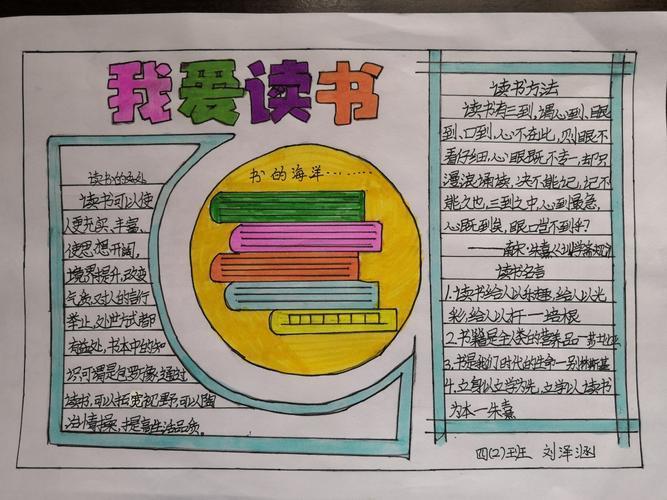 我爱读书
读书的好处
读书可以使
人更充实、丰富、
使思想开阔,
境界提升,改变
气质,对人的言行
举止,处世方式都
有益处,书本中的知
识可谓是包罗万像,通过
读书,可以拓宽视野,可以陶
冶情操,提高生活品质。
书的海洋……
读书方法
读书有三到,谓心到、眼
到、口到,心不在此,则眼不
看仔细,心眼既不专一,却只
漫浪诵读,决不能记,记不
能久也,三到之中,心到最急,
心既到矣,眼口岂不到乎?
——南宋·朱熹《训学斋规》
读书名言
1.读书给人以乐趣,给人以光
彩,给人以才干—培根
2.书籍是全人类的营养品—莎士比亚
3.书是我们时代的生命—别林斯基
4.立身以立学为先,立学以读书
为本—朱熹
四(2)班 刘泽涵